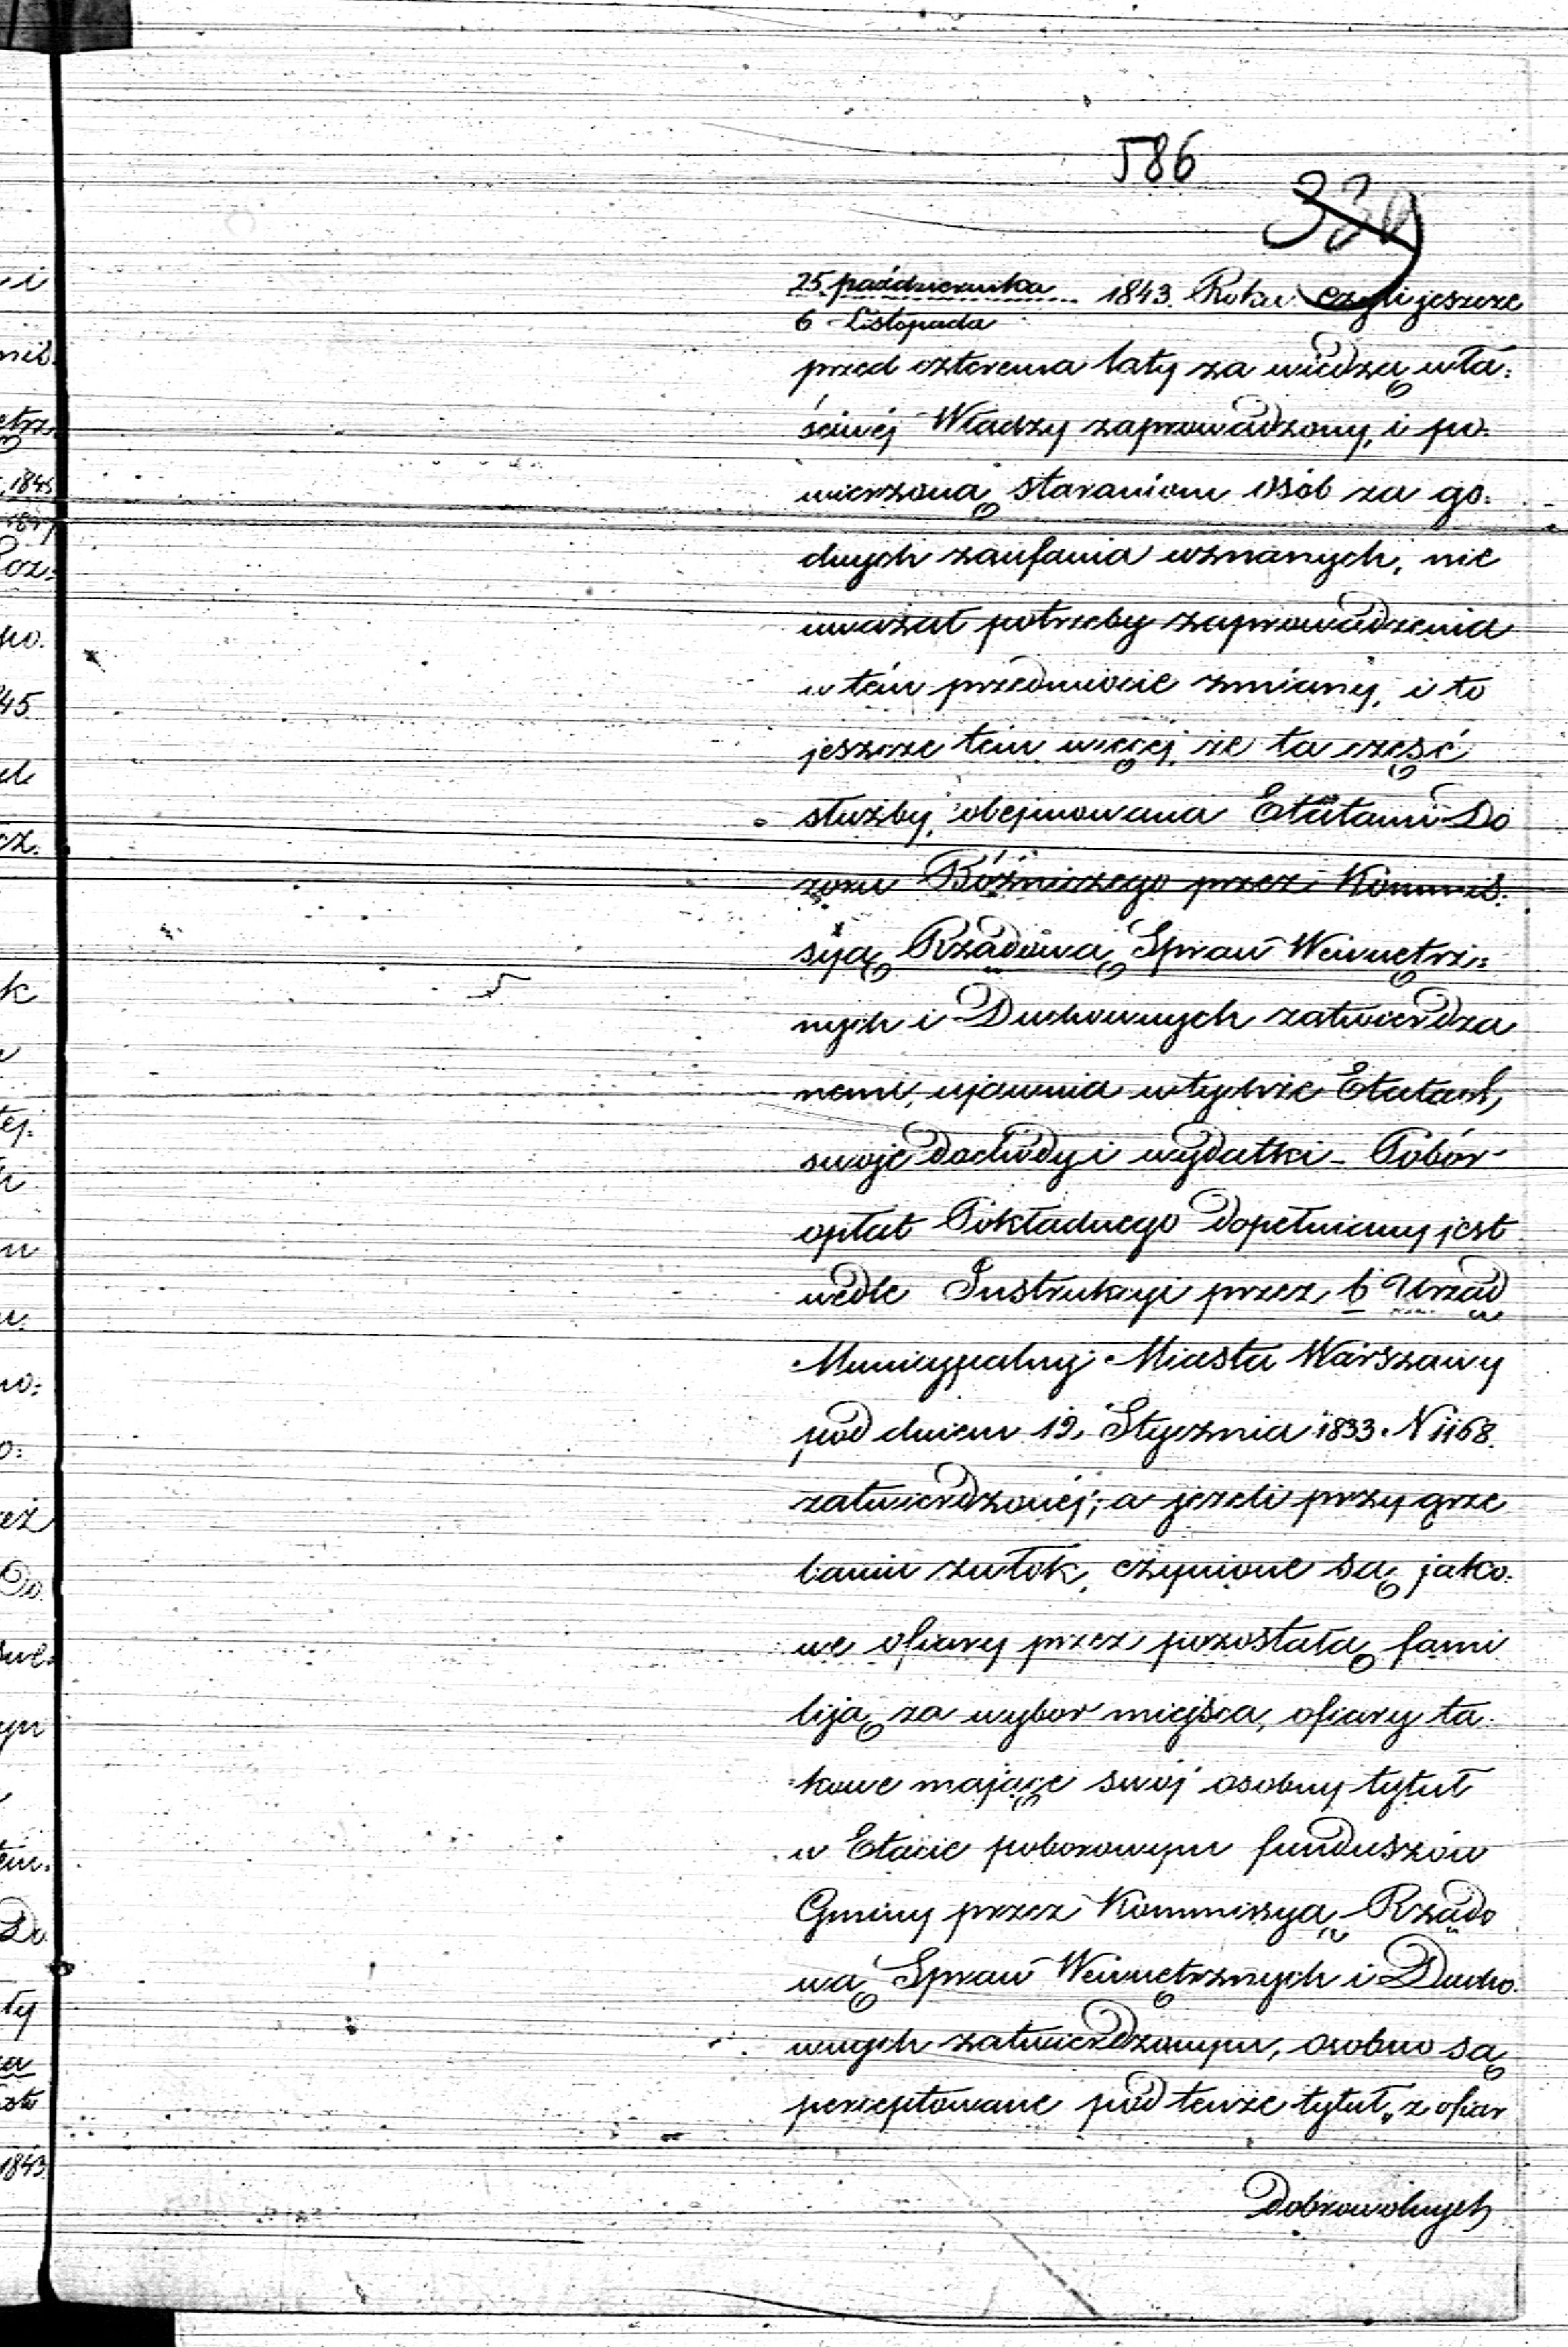 586
25 października 1843. Roku czyli jeszcze
6 Listopada
przed czterema laty za wiedzą wła:
ściwéj Władzy zaprowadzony, i po:
wierzoną staraniom osób za go:
dnych zaufania uznanych, nie
uważał potrzeby zaprowadzenia
w tém przedmiocie zmiany, i to
jeszcze tém więcej, że ta część
służby, obejmowana Etatami Do
zoru Bóźniczego przez Kommis:
syą Rządową Spraw Wewnętrz:
nych i Duchownych zatwierdza
nemi, ujawnia w tychże Etatach,
swoje dochody i wydatki - Pobór
opłat Pokładnego dopełniany jest
wedle Instrukcyi przez b Urząd
Municypalny Miasta Warszawy
pod dniem 12 Stycznia 1833. N 1168.
zatwierdzonéj; a jeżeli przy grze
baniu zwłok, czynione są jako:
we ofiary przez pozostałą fami
liją za wybor miejsca, ofiary ta:
kowe mające swój osobny tytuł
w Etacie poborowym funduszów
Gminy przez Kommissyą Rządo
wą Spraw Wewnętrznych i Ducho:
wnych zatwierdzonym, osobno są
perceptowane pod tenże tytuł „z ofiar
Dobrowolnych